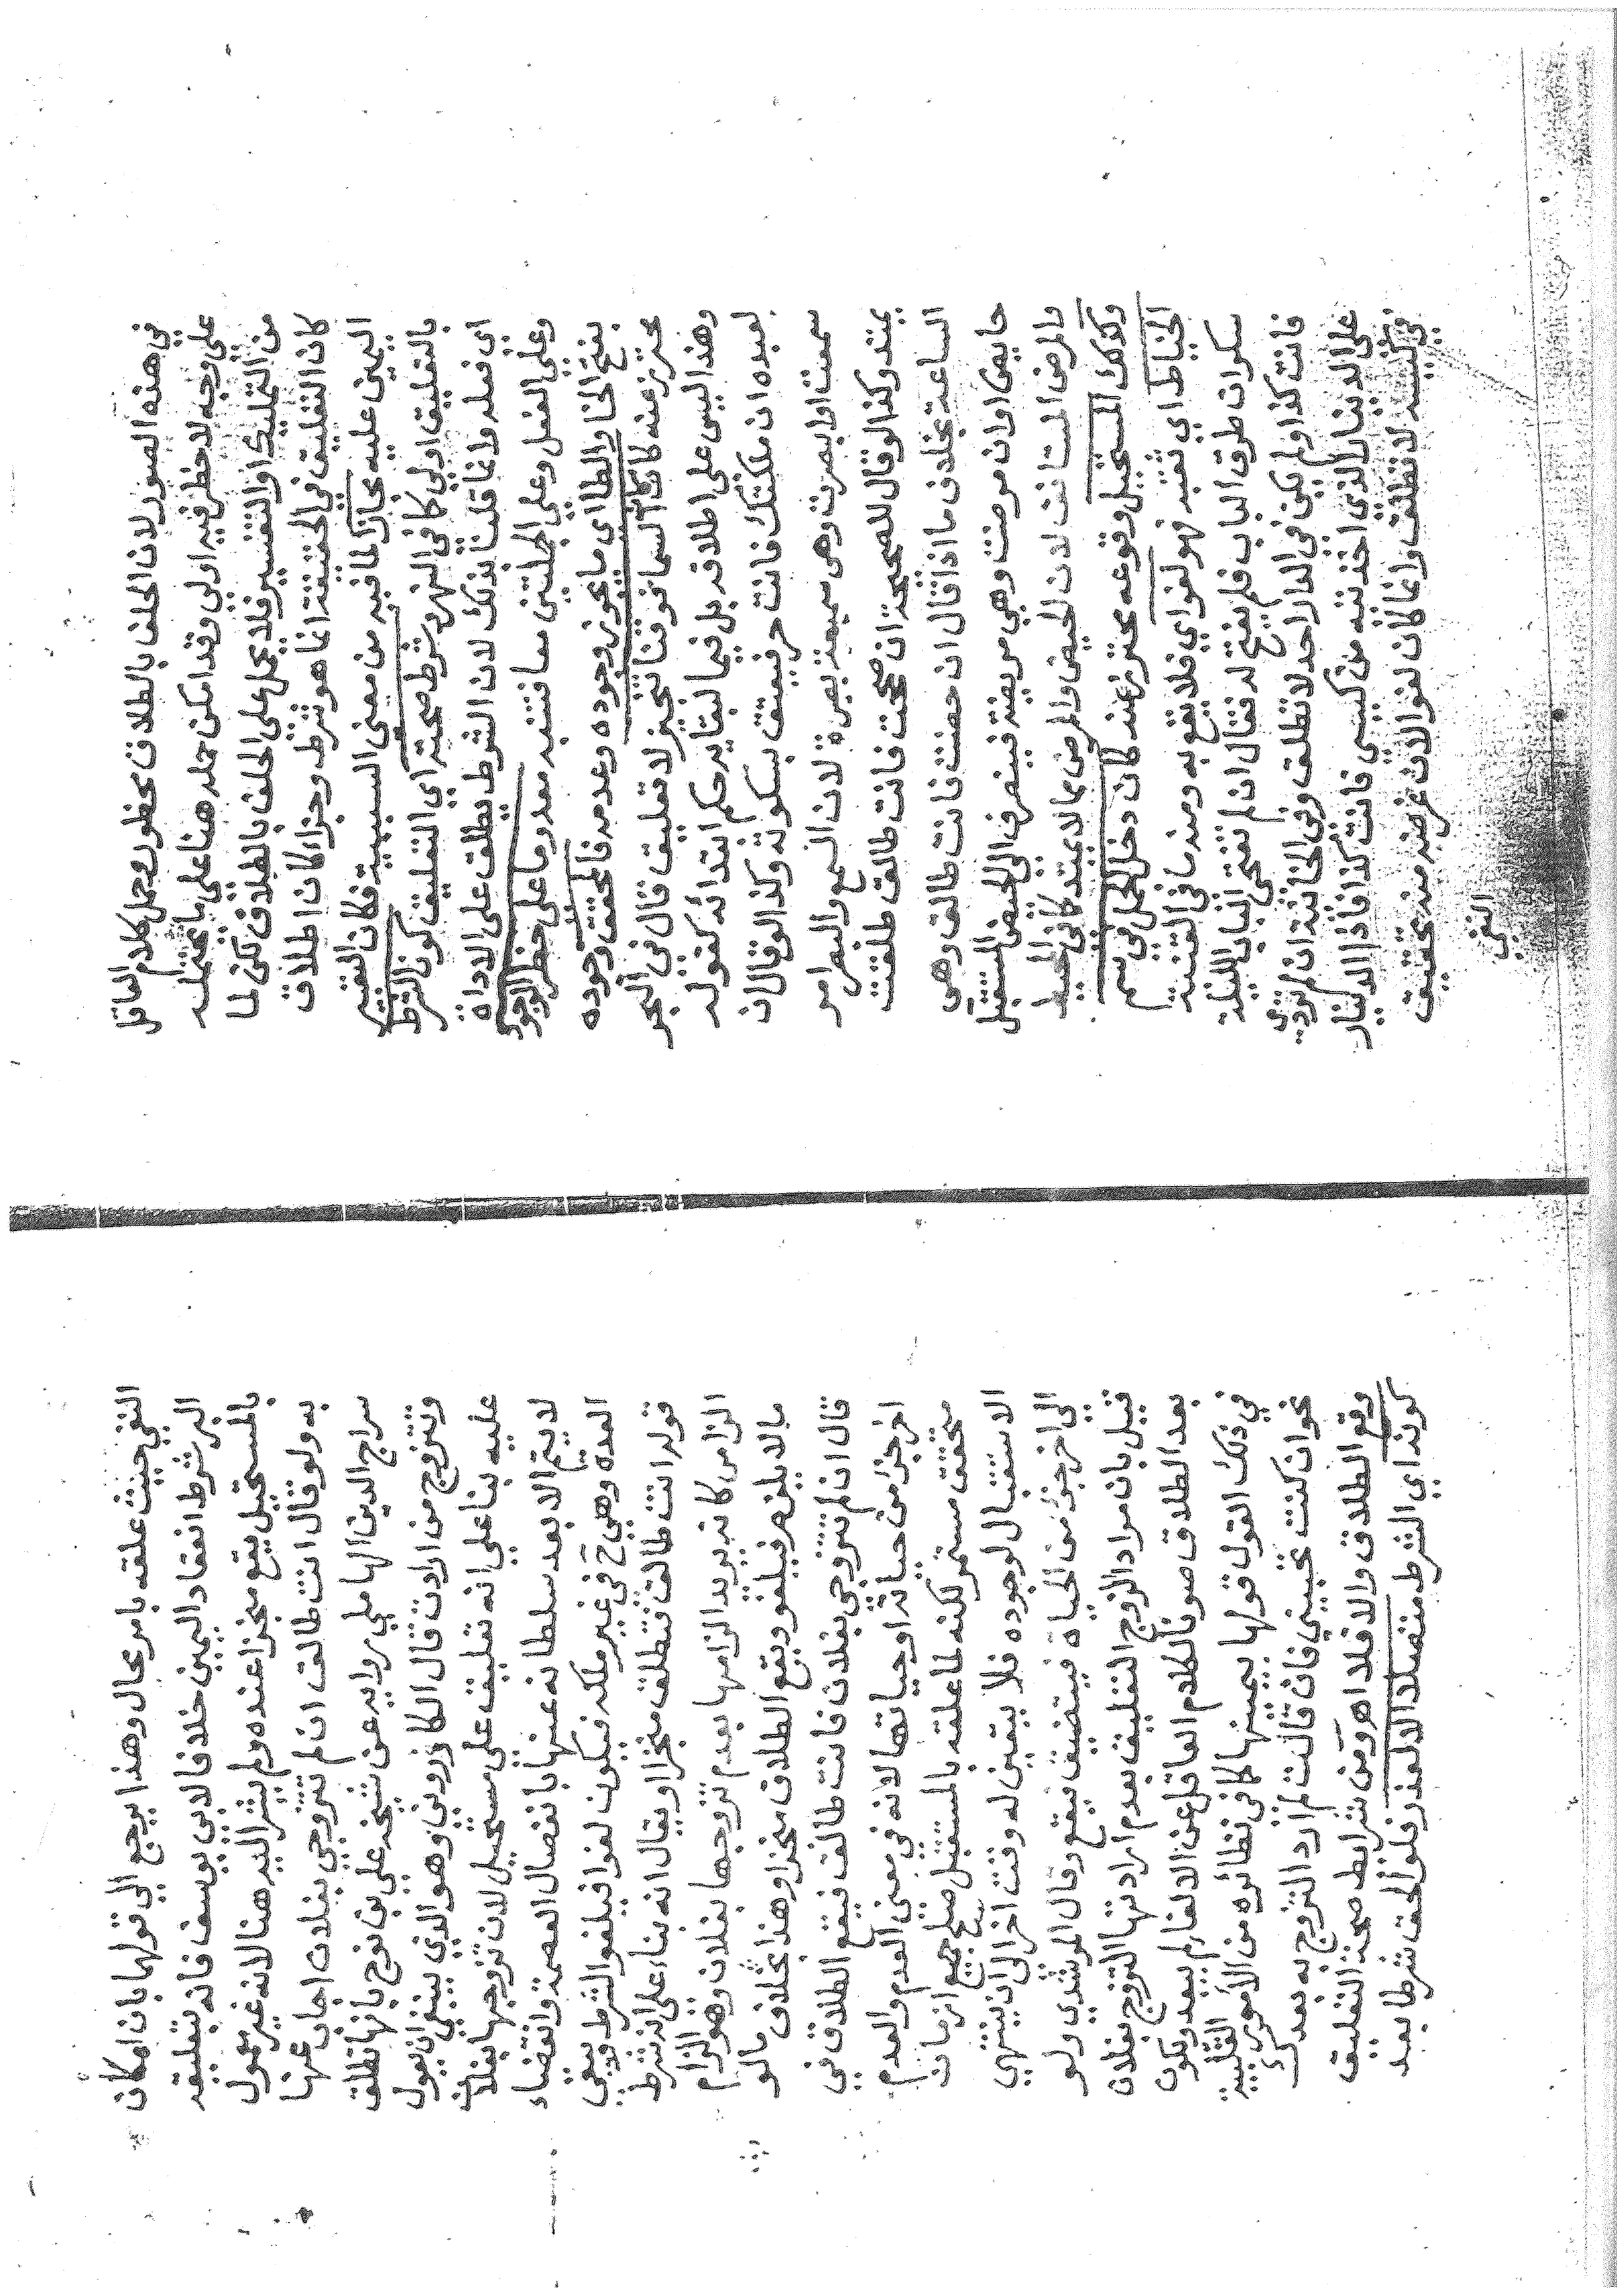 في هذه الصور لان الحلف بالطلاق محظور وحمل كلام العاقل
علي وجه لا حظر فيه اولي وقد امكن حمله هنا علي ما يحتمله
من التمليك او التفسير فلا يحمل علي الحلف بالطلاق لكن لما
كان التعليق في الحقيقة انما هو شرط وجزا كان اطلاق
اليمين عليه مجازا لما فيه من معني السببية فكان التعبير
بالتعليق اولي كما في النهر وشرط صحته اي التعليق كون الشرط
اي فعله وانما قلنا ذلك لان الشرط يطلق علي الاداة
وعلي الفعل وعلي الجملتين معا فتنبه معدوما علي خطر الوجود
بفتح الخا والطا اي ما يجوز وجوده وعدمه فالمحقق وجوده
محترز عنه كان السما فوقنا تنجيز لا تعليق قال في البحر
وهذا ليس علي اطلاقه بل فيما لبقايه حكم ابتدائه كقوله
لعبده ان ملكتك فانت حر فيعتق بسكوته وكذا لو قال ان
سمعت او ابصرت وهي سميعة بصيرة لان السمع والبصر امر
يمتد وكذا لو قال للصحيحة ان صححت فانت طالق طلقت
الساعة بخلاف ما اذا قال ان حضت فانت طالق وهي
حايض او ان مرضت وهي مريضة فينصرف الي الحيض المستقبل
والمرض المستانف لان الحيض والمرض مما لا يمتد كما في المحيط
وكذلك المستحيل وقوعه محترز عنه كان دخل الجمل في سم
الخياط اي ثقبه فهو لغو اي فلا يقع به ومنه ما في القنية
سكران طرق الباب فلم يفتح له فقال ان لم تفتحي الباب الليلة
فانت كذا ولم يكن في الدار احد لا تطلق وفي الخانية ان لم تردي
علي الدينار الذي اخذتيه من كيسي فانت كذا فاذا الدينار
في كيسه لا تطلق وانما كان لغوا لان غرضه منه تحقيق
النفي
النفي حيث علقه بامر محال وهذا يرجع الي قولهما بان امكان
البر شرط انعقاد اليمين خلافا لابي يوسف فانه بتعليقه
بالمستحيل يقع منجزا عنده ولم يشر اليه هنا لانه غير معمول
به ولو قال انت طالق ان لم تتزوجي بفلان اجاب عنها
سراج الدين الهاملي راويه عن شيخه علي بن نوح بانها تطلق
وتتزوج من ارادت قال الكازروني وهو الذي ينبغي ان يعول
عليه بنا علي انه تعليق علي مستحيل لان تزوجها بفلان
لا يتم الا بعد سلطانه عنها بانفصال العصمة وانقضاء
العدة وهي ح في غير ملكه فيكون لغوا فيلغو الشرط ويبقي
قوله انت طالق فتطلق منجزا او يقال انه بناء علي انه شرط
الزامي كانه يريد الزامها بعدم تزوجها بفلان وهو الزام
ما لا يلزم فيلغو ويقع الطلاق منجزا وهذا بخلاف ما لو
قال ان لم تتزوجي بفلان فانت طالق فيقع الطلاق في
اخر جزء من حياته او حياتها لانه في معني العدم والعدم
متحقق مستمر لكنه لما علقه بالمستقبل صلح جميع ازمان
الاستقبال لوجوده فلا يتعين له وقت اخر الي ان ينتهي
الي اخر جزء من الحياة فيتضيق فيقع وقال المرشدي ولو
قيل بان مراد الزوج التعليق بعدم ارادتها التزوج بفلان
بعد الطلاق صونا لكلام العاقل عن الالغا لم يبعد ويكون
في ذلك القول قولها بيمينها كما في نظائره من الامور القلبية
نحو ان كنت تحبيني فان قالت لم ارد التزوج به بعدك
وقع الطلاق والا فلا اهـ ومن شرايط صحة التعليق
كونه اي الشرط متصلا الا لعذر فلو الحق شرطا بعد